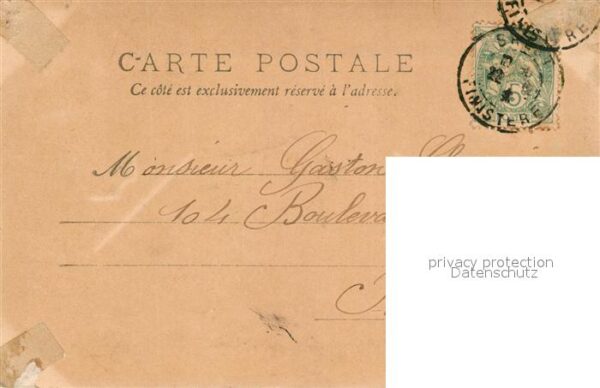 CARTE POSTALE
Ce côté est exclusivement réservé à l'adresse.
FINISTERE
Monsieur Gaston
104 Bouleva
privacy protection
Datenschutz